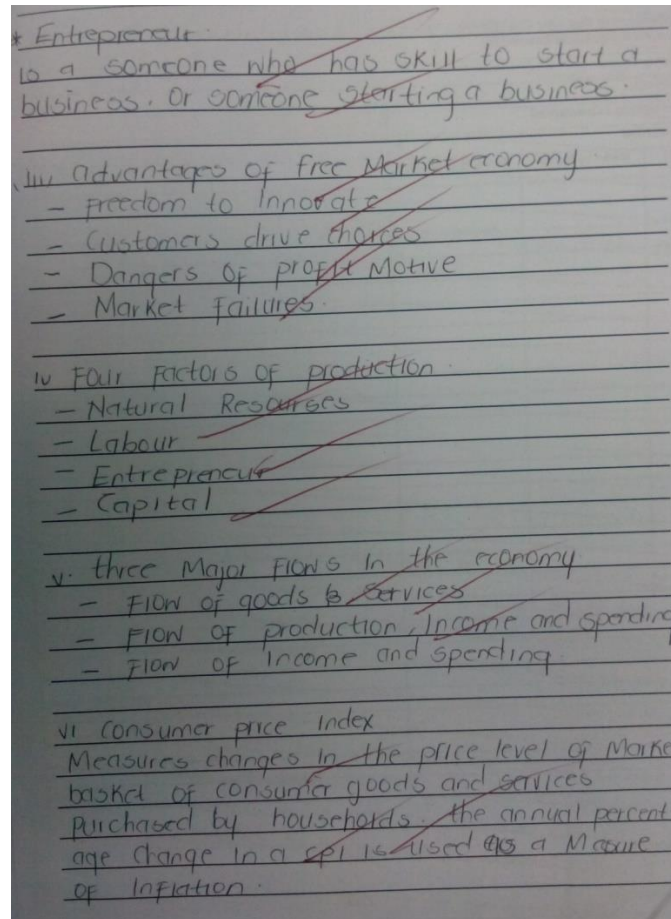 * Entreprenair.
is a someone who has skill to start a
business. Or someone starting a business.
iii, advantages of free Market economy
- Freedom to Innovate
- Customers drive choices
- Dangers of profit Motive
- Market Failures.
iv Four Factors of production.
- Natural Resourses
- Labour
- Entrepreneur
- Capital
v. three Major Flows In the economy
- Flow of goods & Services
- Flow of production, Income and spending
- Flow of Income and spending.
vi Consumer price Index
Measures changes in the price level of Marke
basket of consumer goods and services
purchased by households. the annual percent
age change in a cpi is used as a Maoure
of Inflation.